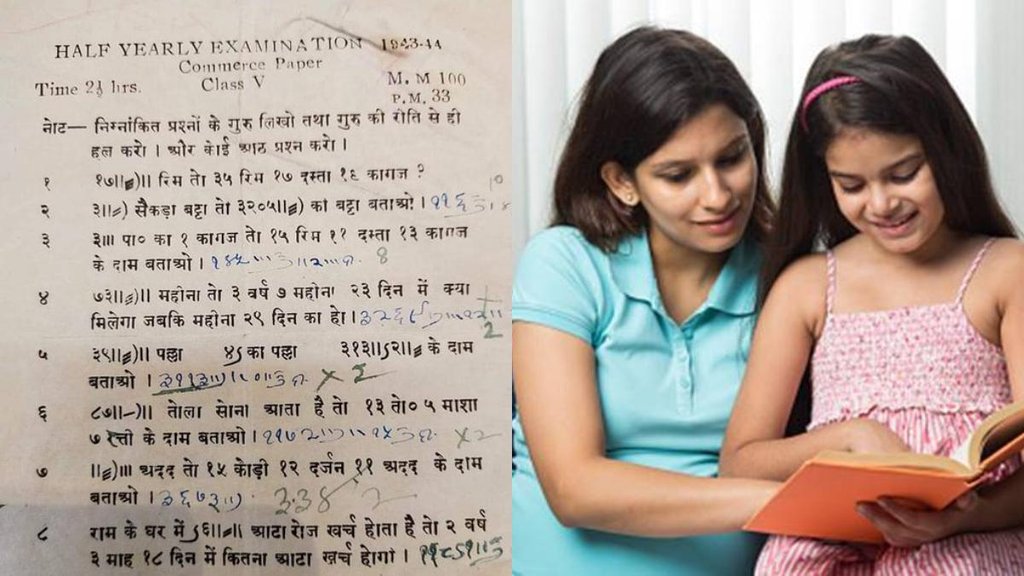 HALF YEARLY EXAMINATION 1943-44
Commerce Paper
Time 2½ hrs. Class V M. M 100
P.M. 33
नोट— निम्नांकित प्रश्नों के गुरु लिखो तथा गुरु की रीति से ही
हल करो । और कोई आठ प्रश्न करो ।
१ १७॥⋦)॥ रिम तो ३५ रिम १७ दस्ता १६ कागज ?
२ ३॥⋍) सैकड़ा बट्टा तो ३२०५॥⋦) का बट्टा बताओ ।
३ ३॥। पा० का १ कागज तो १५ रिम ११ दस्ता १३ कागज
के दाम बताओ ।
४ ७३॥⋦)॥ महीना तो ३ वर्ष ७ महीना २३ दिन में क्या
मिलेगा जबकि महीना २९ दिन का हो ।
५ ३९॥⋦)॥ पल्ला ४ऽ का पल्ला ३१३॥ऽ२॥⋦ के दाम
बताओ ।
६ ८७॥-)॥ तोला सोना आता है तो १३ तो० ५ माशा
७ रत्ती के दाम बताओ ।
७ ॥⋍)॥। अदद तो १५ कोड़ी १२ दर्जन ११ अदद के दाम
बताओ ।
८ राम के घर में ऽ६॥⋍॥ आटा रोज खर्च होता है तो २ वर्ष
३ माह १८ दिन में कितना आटा खर्च होगा ।